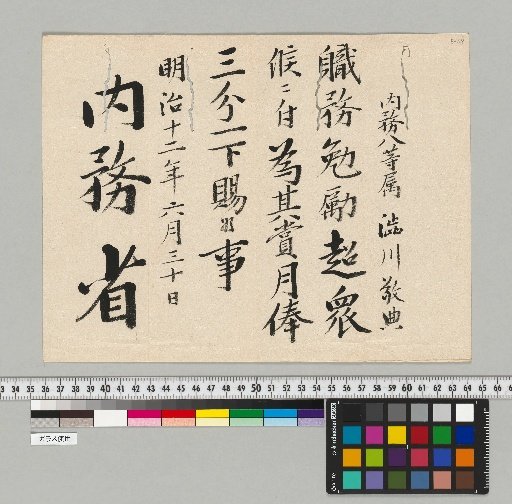 内務八等属 澁川敬典
職務勉励超衆
候ニ付為其賞月俸
三分一下賜候事
明治十二年六月三十日
内務省
33 34 35 36 37 38 39 40 41 42 43 44 45 46 47 48 49 50 51 52 53 54 55 56 57 58 59 60 61 62 63 64 65 66
ガラス使用